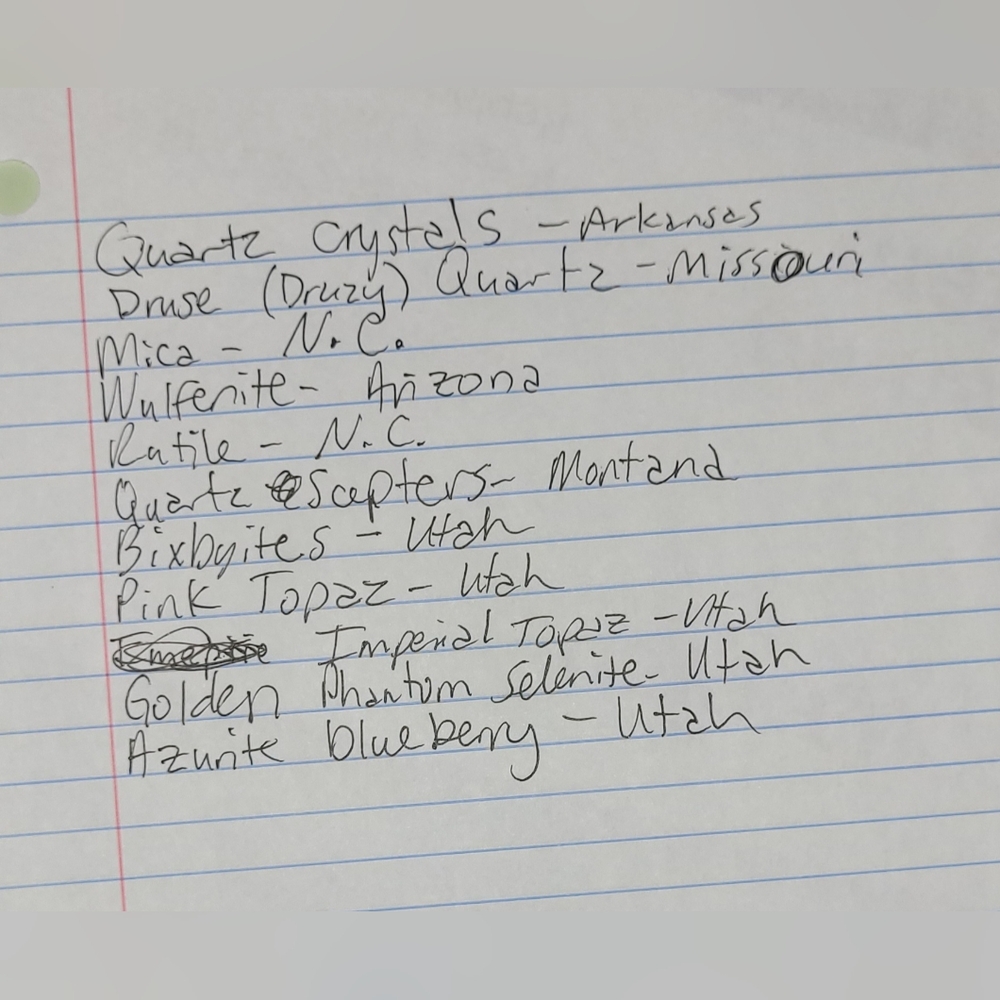 Quartz Crystals - Arkansas
Druse (Druzy) Quartz - Missouri
Mica - N.C.
Wulfenite - Arizona
Rutile - N.C.
Quartz Scepters - Montana
Bixbyites - Utah
Pink Topaz - Utah
Imperial Topaz - Utah
Golden Phantom Selenite - Utah
Azurite blueberry - Utah